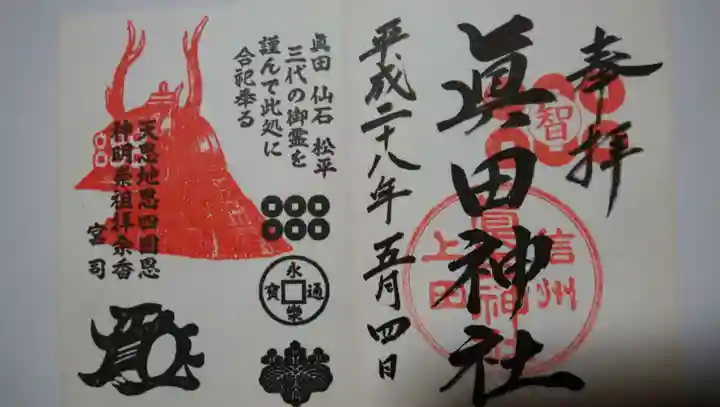 奉拝
智
眞田神社
信州
上田
眞田神社
平成二十八年五月四日
眞田 仙石 松平
三代の御霊を
謹んで此処に
合祀奉る
永樂通寳
天恩地恩四圉恩
神明崇祖拝余香
宮司